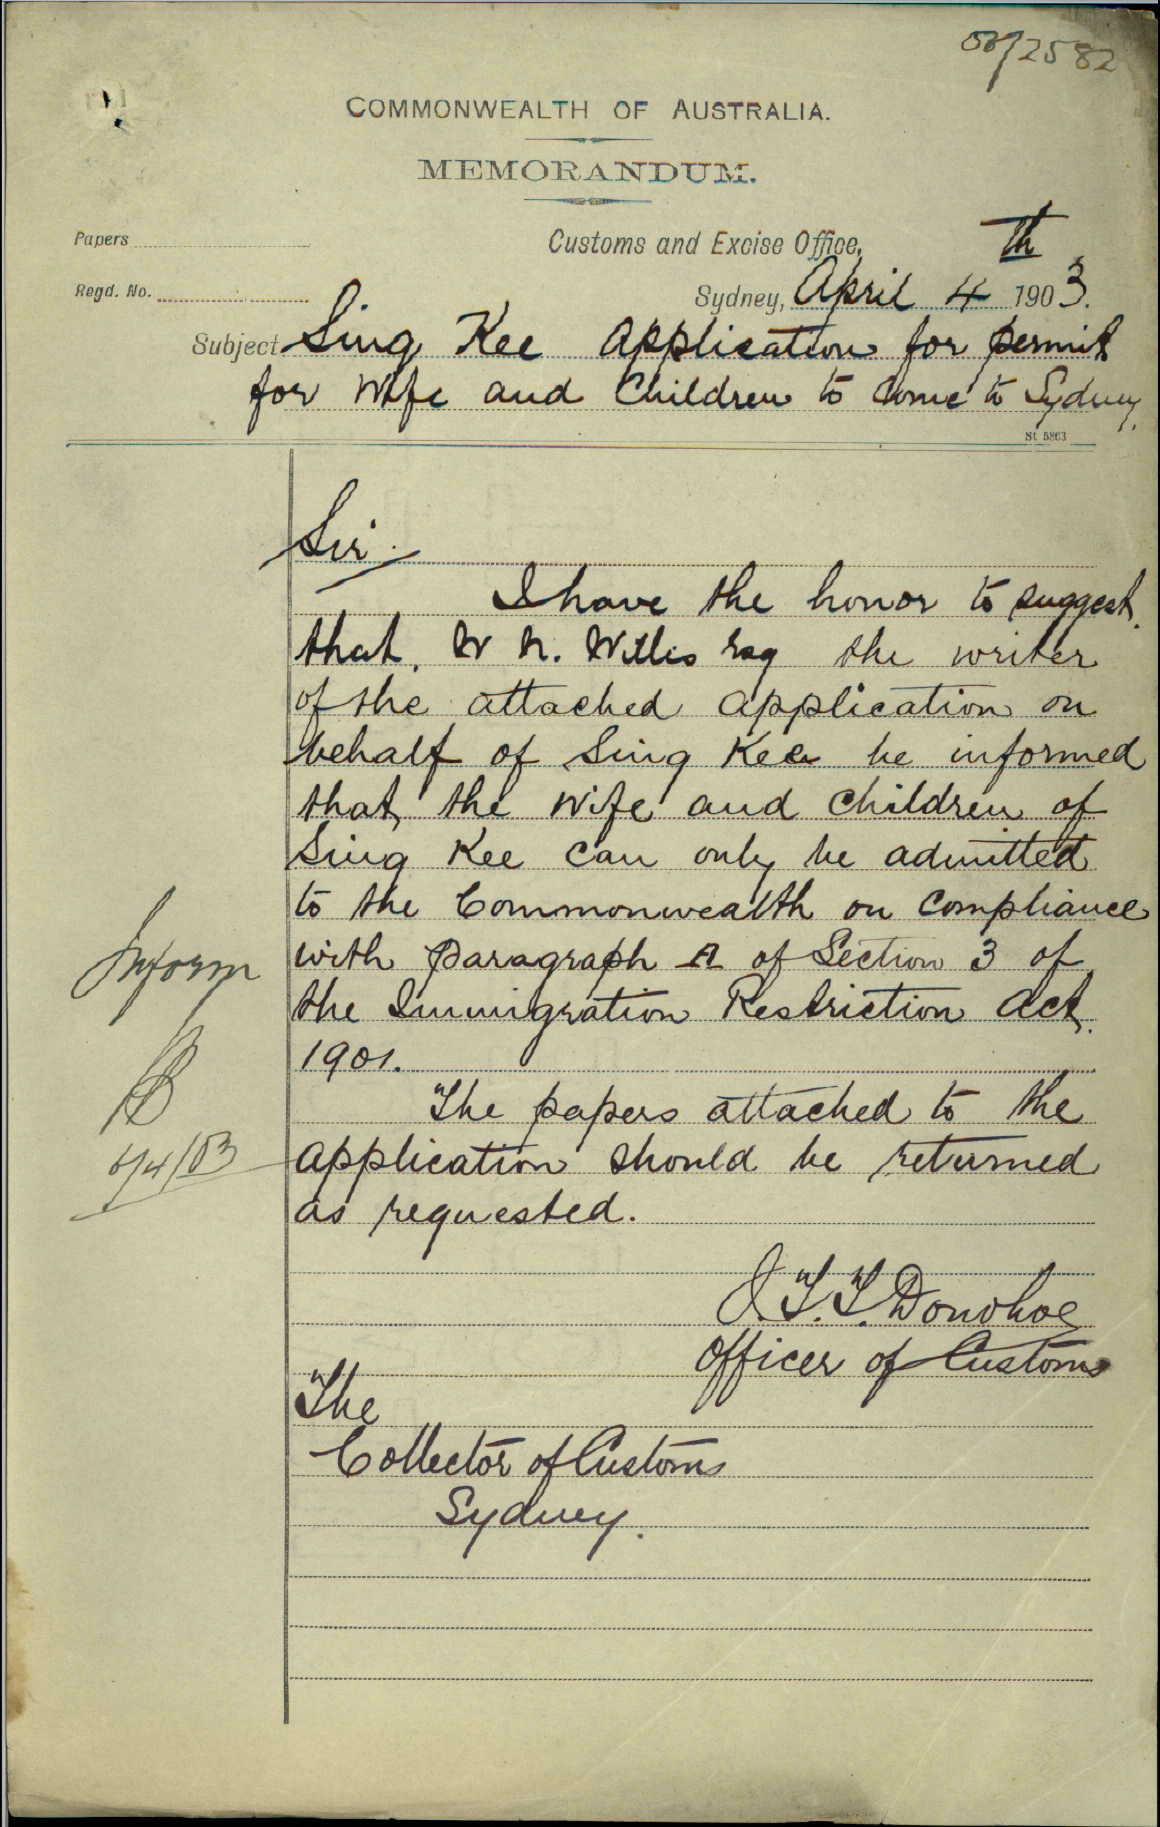 03/2582
COMMONWEALTH OF AUSTRALIA.
MEMORANDUM.
Papers
Customs and Excise Office,
Regd. No.
Sydney, April 4th 1903.
Subject Sing Kee Application for permit
for Wife and Children to come to Sydney.
St. 5863
Sir.
I have the honor to suggest
that, W N. Willis Esq the writer
of the attached application on
behalf of Sing Kee be informed
that, the Wife and Children of
Sing Kee can only be admitted
to the Commonwealth on compliance
with paragraph A of Section 3 of
the Immigration Restriction Act,
1901.
The papers attached to the
application should be returned
as requested.
Inform
6/4/03
J.T.T. Donohoe
Officer of Customs
The
Collector of Customs
Sydney.